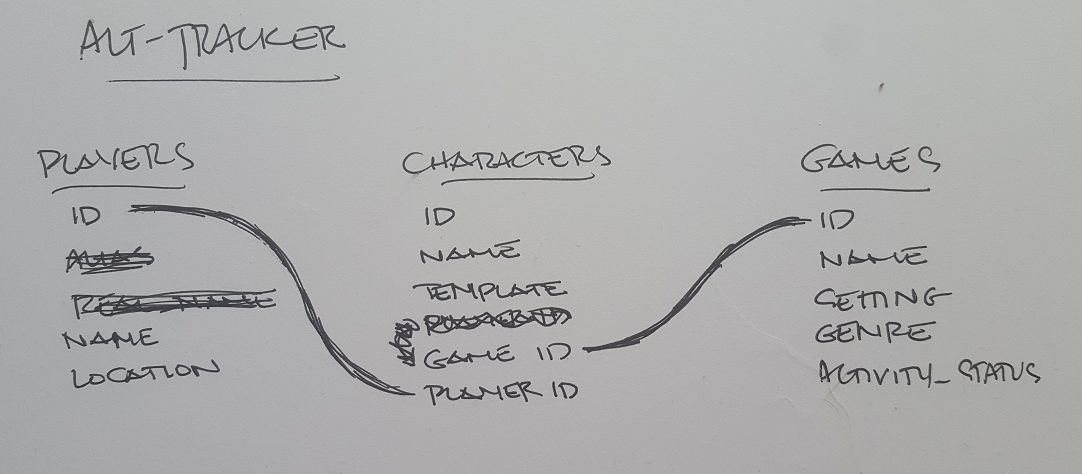 ALT-TRACKER
PLAYERS
ID
ALIAS
REAL_NAME
NAME
LOCATION
CHARACTERS
ID
NAME
TEMPLATE
GAME ID
PLAYER ID
GAMES
ID
NAME
SETTING
GENRE
ACTIVITY_STATUS